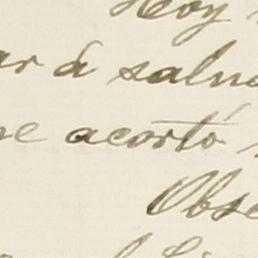 Hoy
ar á salu
se acortó
Obse